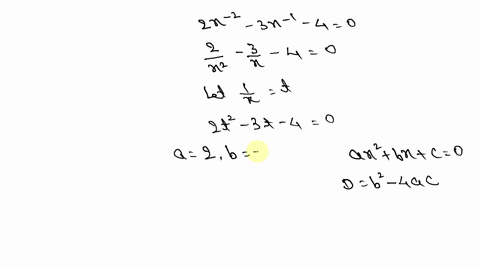 2x⁻² - 3x⁻¹ - 4 = 0
2/x² - 3/x - 4 = 0
Let 1/x = t
2t² - 3t - 4 = 0
a = 2, b = -
ax² + bx + c = 0
D = b² - 4ac